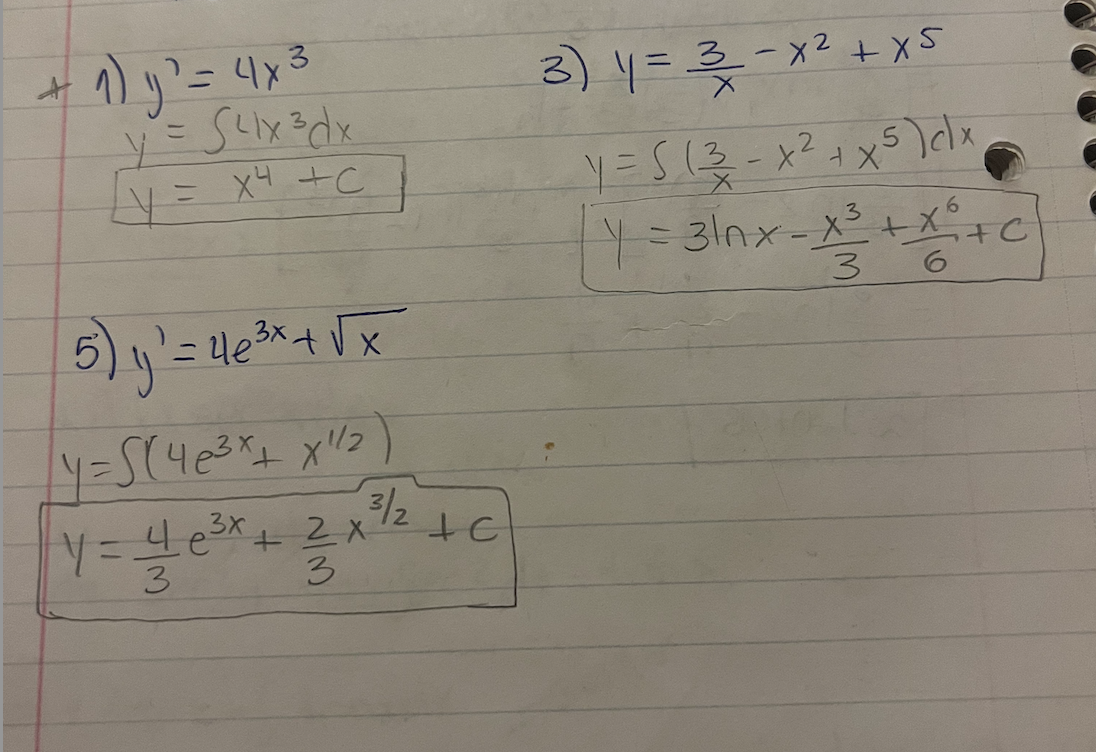 1) y' = 4x³
y = ∫4x³dx
y = x⁴ + C
3) y = 3/x - x² + x⁵
y = ∫(3/x - x² + x⁵)dx
y = 3lnx - x³/3 + x⁶/6 + C
5) y' = 4e³ˣ + √x
y = ∫(4e³ˣ + x^1/2)
y = 4/3 e³ˣ + 2/3 x^3/2 + C